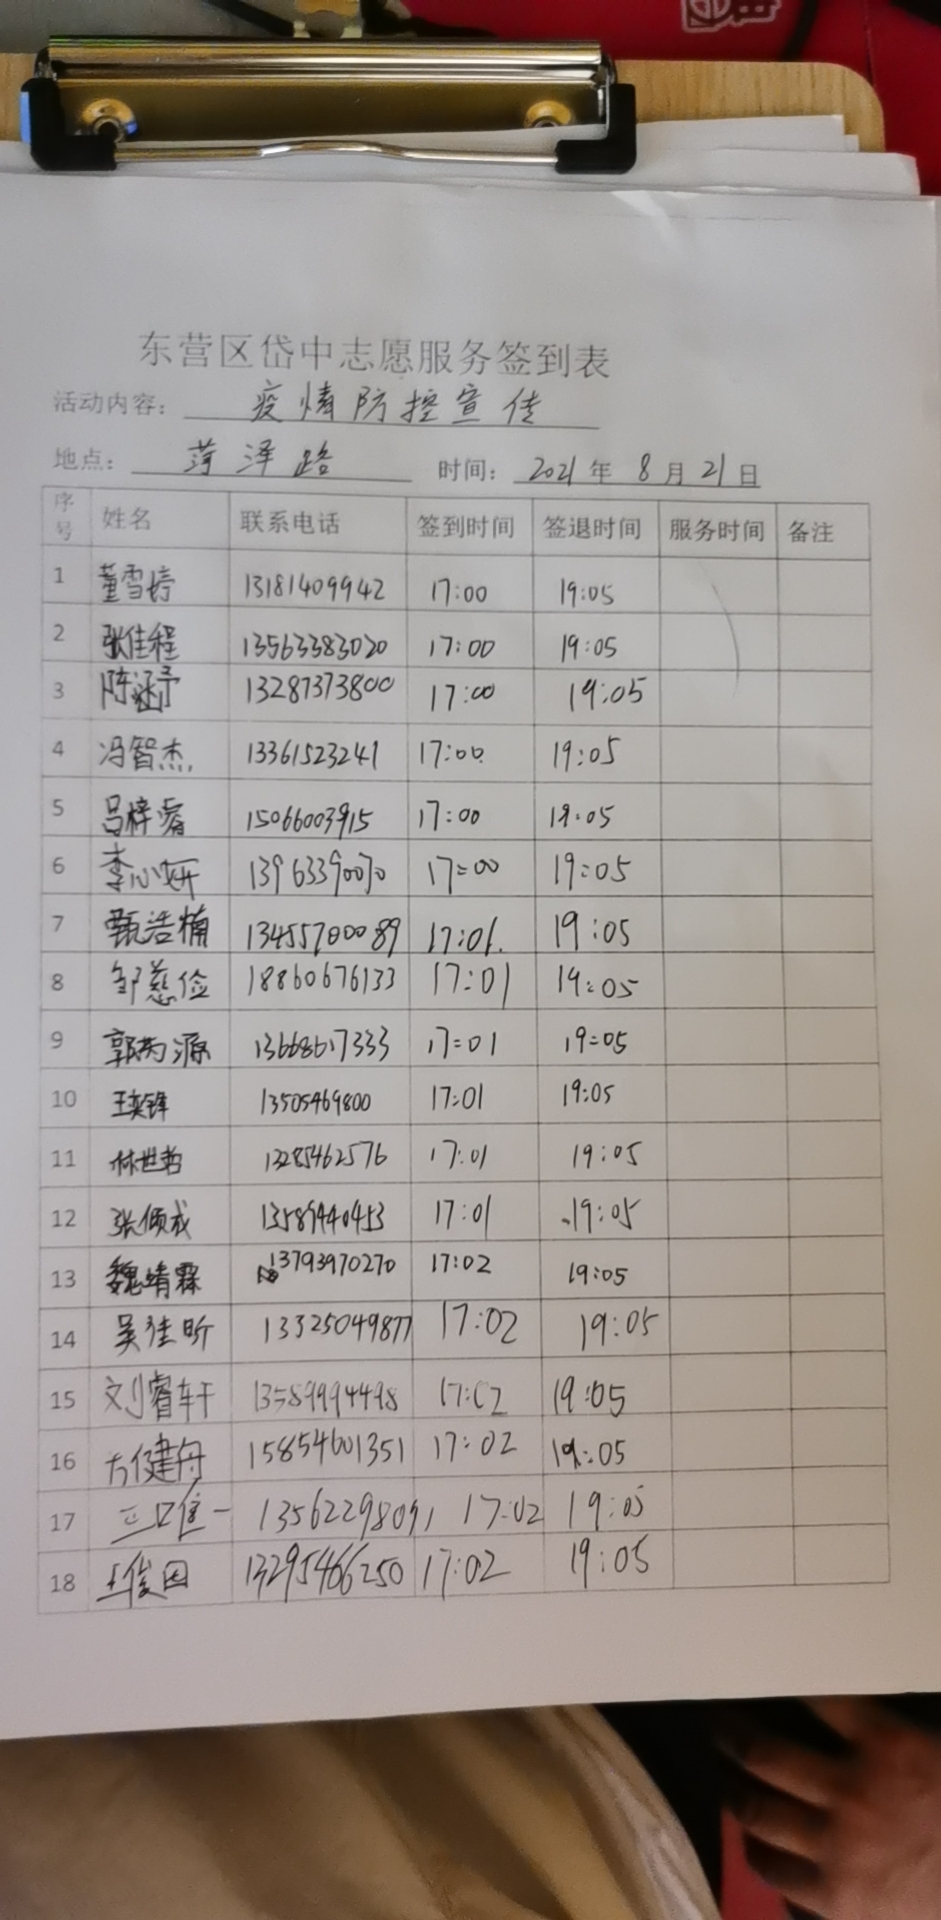 东营区岱中志愿服务签到表
活动内容： 疫情防控宣传
地点： 菏泽路 时间： 2021年8月21日
序号 姓名 联系电话 签到时间 签退时间 服务时间 备注
1 董雪婷 13181409942 17:00 19:05
2 张佳程 13563383020 17:00 19:05
3 陈涵予 13287373800 17:00 19:05
4 冯智杰 13361523241 17:00 19:05
5 吕梓睿 15066003915 17:00 19:05
6 李心妍 13963390070 17:00 19:05
7 甄浩楠 13455700089 17:01 19:05
8 邹慈俭 18860676133 17:01 19:05
9 郭芮源 13668617333 17:01 19:05
10 王奕锋 13505469800 17:01 19:05
11 林世哲 13285462576 17:01 19:05
12 张倾成 13589440453 17:01 19:05
13 魏靖霖 13793970270 17:02 19:05
14 吴佳昕 13325049877 17:02 19:05
15 刘睿轩 13589994498 17:02 19:05
16 方健舟 15854601351 17:02 19:05
17 13562298091 17:02 19:05
18 13295466250 17:02 19:05